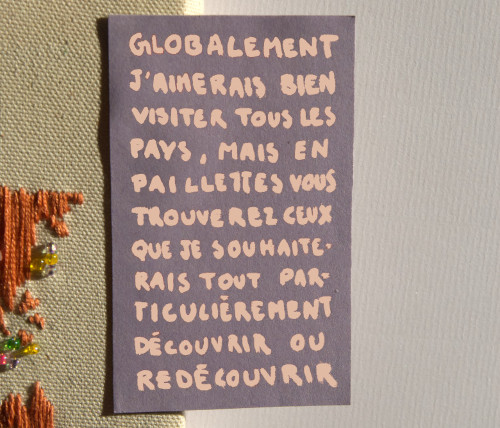 GLOBALEMENT
J'AIMERAIS BIEN
VISITER TOUS LES
PAYS, MAIS EN
PAILLETTES VOUS
TROUVEREZ CEUX
QUE JE SOUHAITE-
RAIS TOUT PAR-
TICULIÈREMENT
DÉCOUVRIR OU
REDÉCOUVRIR